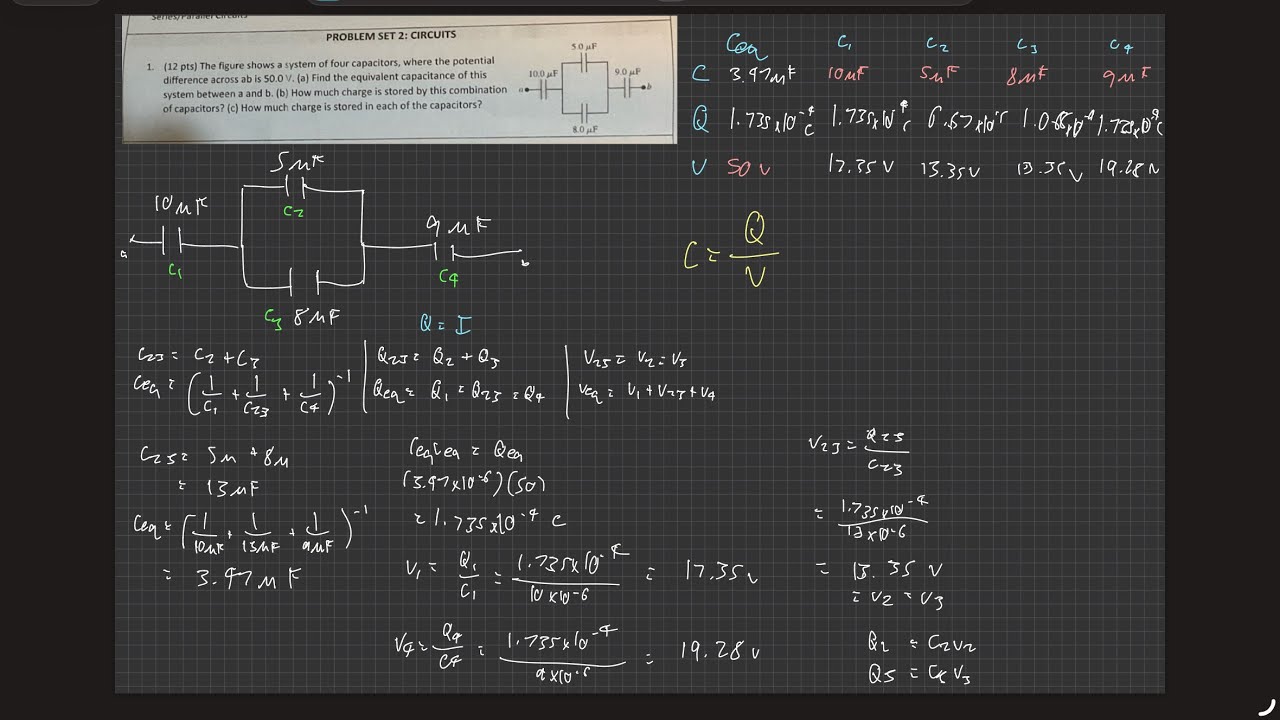 Series/Parallel Circuits
PROBLEM SET 2: CIRCUITS
1. (12 pts) The figure shows a system of four capacitors, where the potential
difference across ab is 50.0 V. (a) Find the equivalent capacitance of this
system between a and b. (b) How much charge is stored by this combination
of capacitors? (c) How much charge is stored in each of the capacitors?
5.0 μF
10.0 μF
9.0 μF
a
b
8.0 μF
Ceq C1 C2 C3 C4
C 3.97μF 10μF 5μF 8μF 9μF
Q 1.735x10^-4 C 1.735x10^-4 C 6.67x10^-5
V 50 V 17.35 V 13.35V 13.35V 19.28 V
C = Q/V
5μF
C2
10μF
9μF
a
b
C1
C4
C3 8μF
Q = I
C23 = C2 + C3
Ceq = (1/C1 + 1/C23 + 1/C4)^-1
Q23 = Q2 + Q3
Qeq = Q1 = Q23 = Q4
V23 = V2 = V3
Veq = V1 + V23 + V4
C23 = 5μ + 8μ
= 13μF
Ceq = (1/10μF + 1/13μF + 1/9μF)^-1
= 3.97μF
CeqVeq = Qeq
(3.97x10^-6)(50)
= 1.735x10^-4 C
V1 = Q1/C1 = 1.735x10^-4/10x10^-6 = 17.35V
V4 = Q4/C4 = 1.735x10^-4/9x10^-6 = 19.28V
V23 = Q23/C23
= 1.735x10^-4/13x10^-6
= 13.35 V
= V2 = V3
Q2 = C2V2